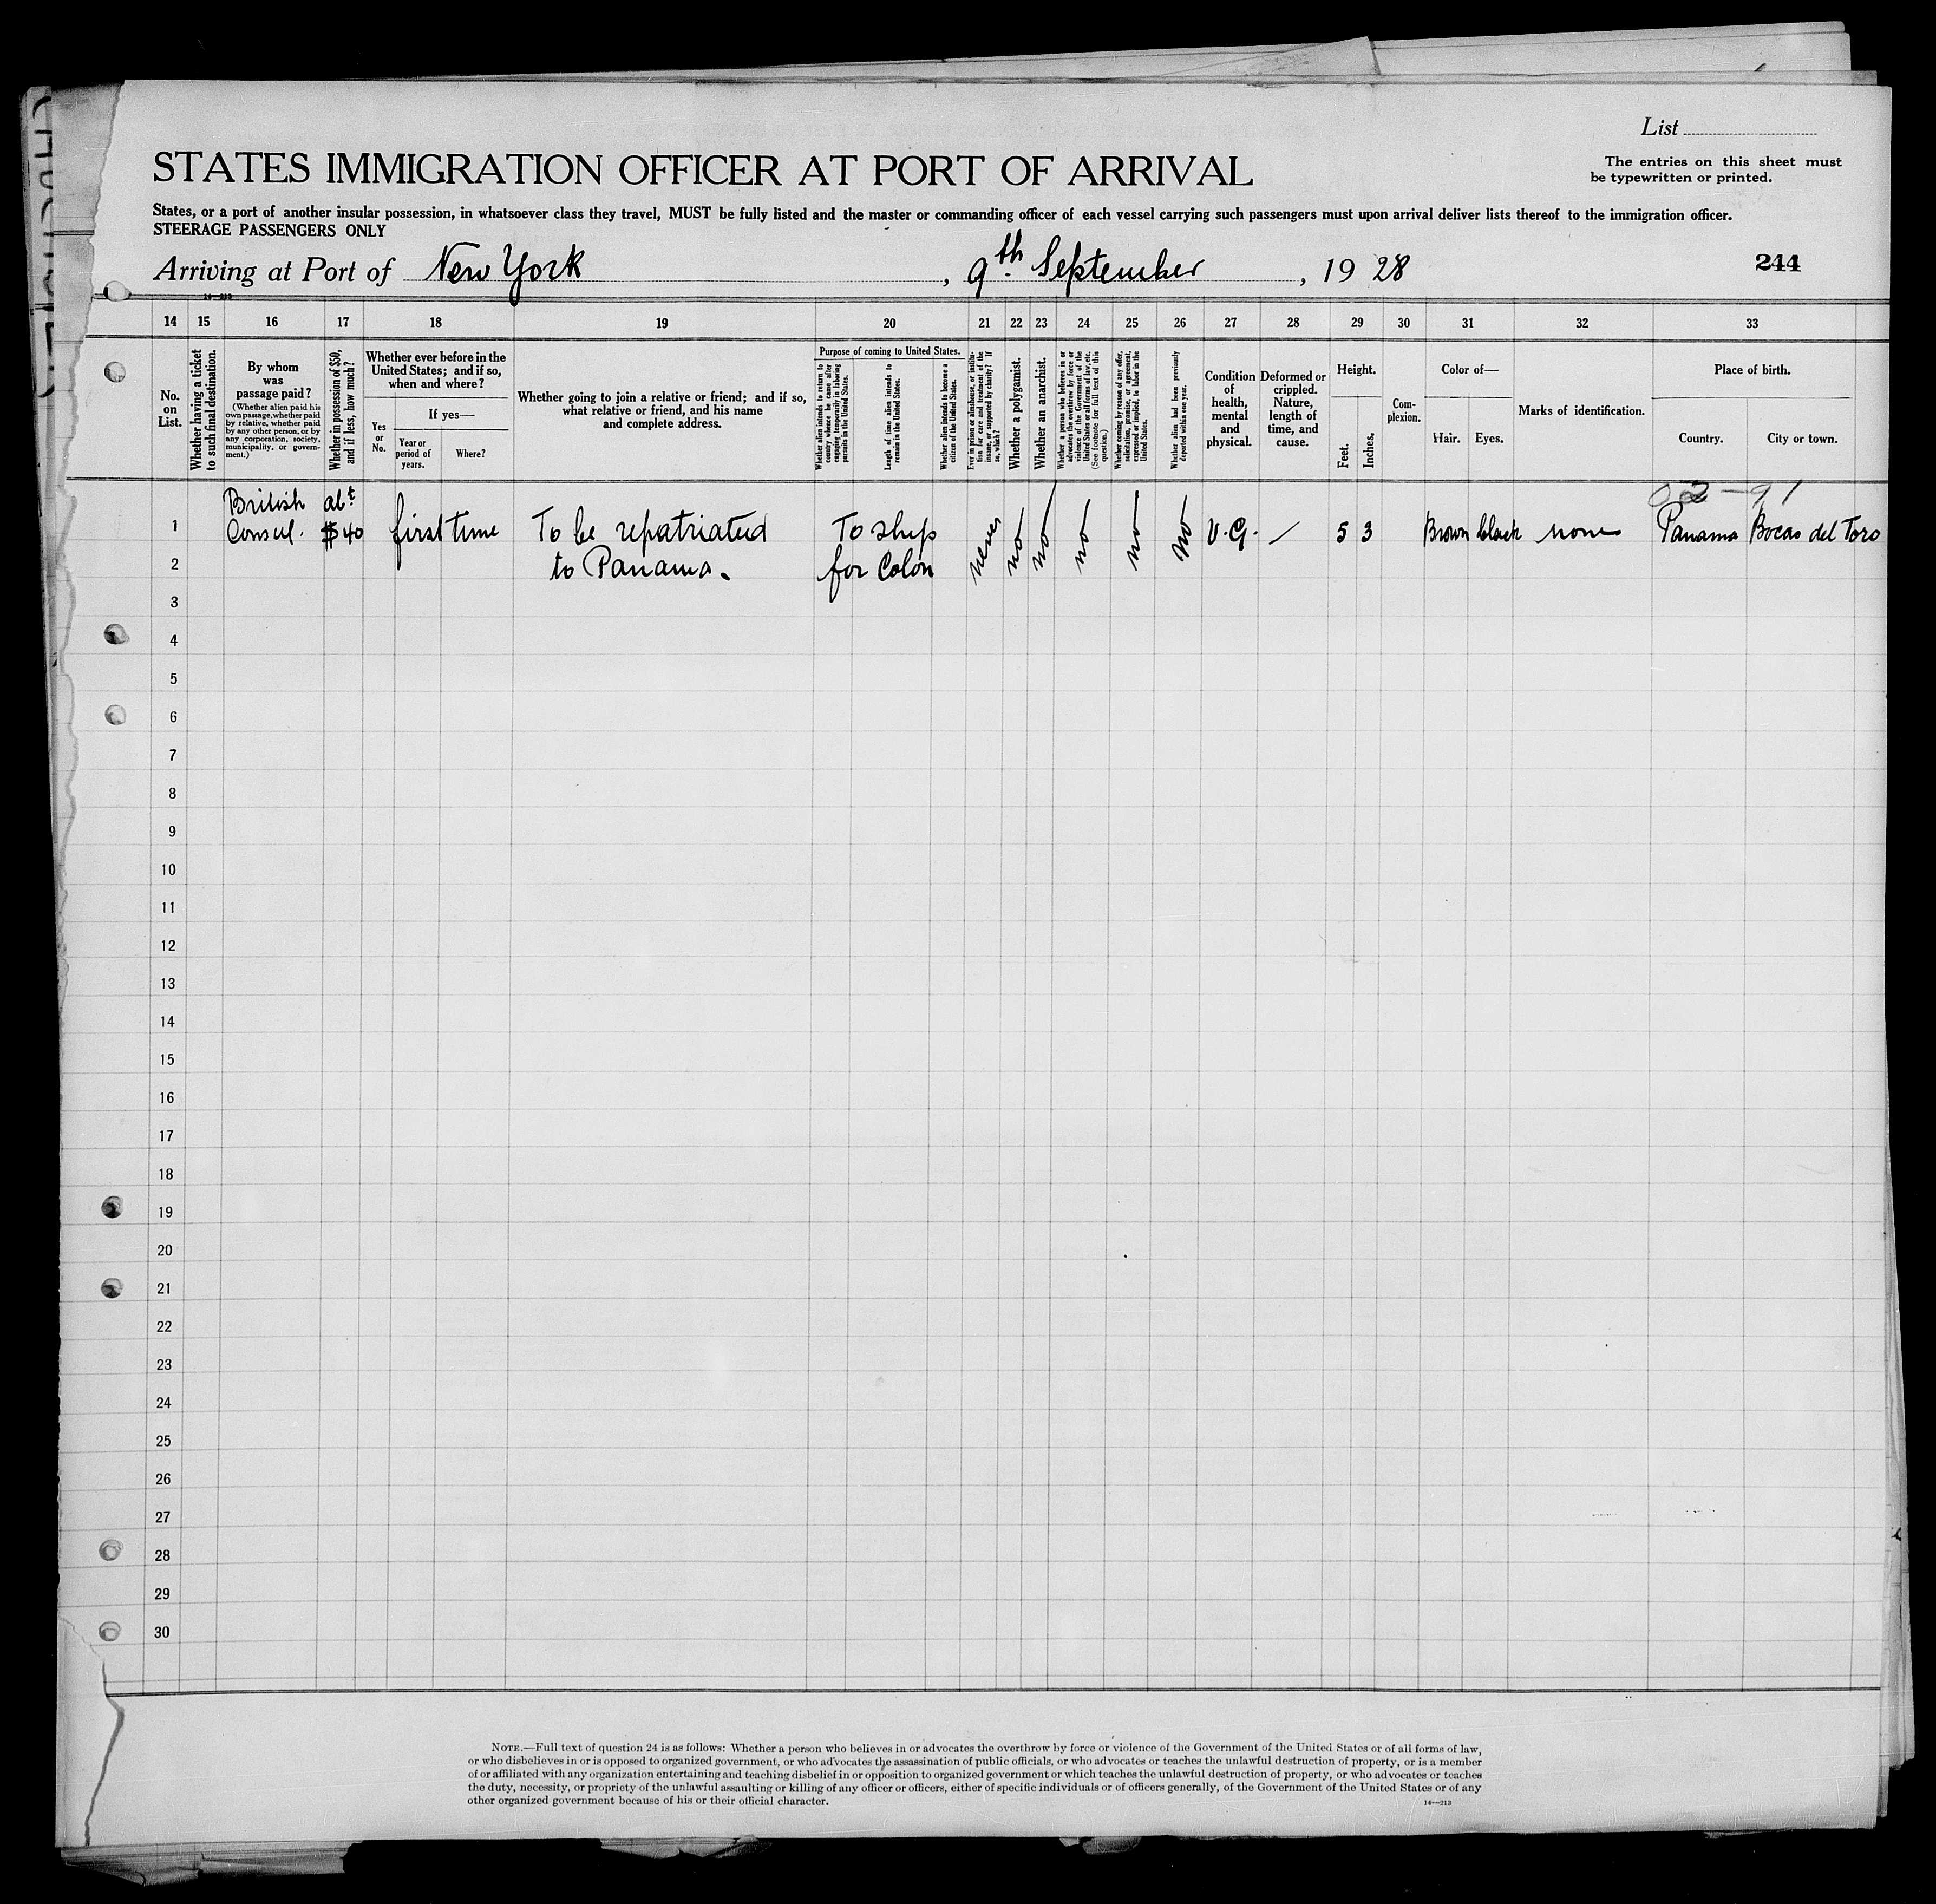 List
STATES IMMIGRATION OFFICER AT PORT OF ARRIVAL
The entries on this sheet must
be typewritten or printed.
States, or a port of another insular possession, in whatsoever class they travel, MUST be fully listed and the master or commanding officer of each vessel carrying such passengers must upon arrival deliver lists thereof to the immigration officer.
STEERAGE PASSENGERS ONLY
Arriving at Port of New York, 9th September, 1928
244
14—213
14 15 16 17 18 19 20 21 22 23 24 25 26 27 28 29 30 31 32 33
No.
on
List.
Whether having a ticket
to such final destination.
By whom
was
passage paid?
(Whether alien paid his
own passage, whether paid
by relative, whether paid
by any other person, or by
any corporation, society,
municipality, or govern-
ment.)
Whether in possession of $50,
and if less, how much?
Whether ever before in the
United States; and if so,
when and where?
Yes
or
No.
If yes—
Year or
period of
years.
Where?
Whether going to join a relative or friend; and if so,
what relative or friend, and his name
and complete address.
Purpose of coming to United States.
Whether alien intends to return to
country whence he came after
engaging temporarily in laboring
pursuits in the United States.
Length of time alien intends to
remain in the United States.
Whether alien intends to become a
citizen of the United States.
Ever in prison or almshouse, or institu-
tion for care and treatment of the
insane, or supported by charity? If
so, which?
Whether a polygamist.
Whether an anarchist.
Whether a person who believes in or
advocates the overthrow by force or
violence of the Government of the
United States or all forms of law, etc.
(See footnote for full text of this
question.)
Whether coming by reason of any offer,
solicitation, promise, or agreement,
expressed or implied, to labor in the
United States.
Whether alien had been previously
deported within one year.
Condition
of
health,
mental
and
physical.
Deformed or
crippled.
Nature,
length of
time, and
cause.
Height.
Feet.
Inches.
Com-
plexion.
Color of—
Hair.
Eyes.
Marks of identification.
Place of birth.
Country.
City or town.
British abt
1 Consul. $40 first time To be repatriated To ship never no no no no no V.G. / 5 3 Brown black none Panama Bocas del Toro
2 to Panama. for Colon
3
4
5
6
7
8
9
10
11
12
13
14
15
16
17
18
19
20
21
22
23
24
25
26
27
28
29
30
NOTE.—Full text of question 24 is as follows: Whether a person who believes in or advocates the overthrow by force or violence of the Government of the United States or of all forms of law,
or who disbelieves in or is opposed to organized government, or who advocates the assassination of public officials, or who advocates or teaches the unlawful destruction of property, or is a member
of or affiliated with any organization entertaining and teaching disbelief in or opposition to organized government or which teaches the unlawful destruction of property, or who advocates or teaches
the duty, necessity, or propriety of the unlawful assaulting or killing of any officer or officers, either of specific individuals or of officers generally, of the Government of the United States or of any
other organized government because of his or their official character.
14—213